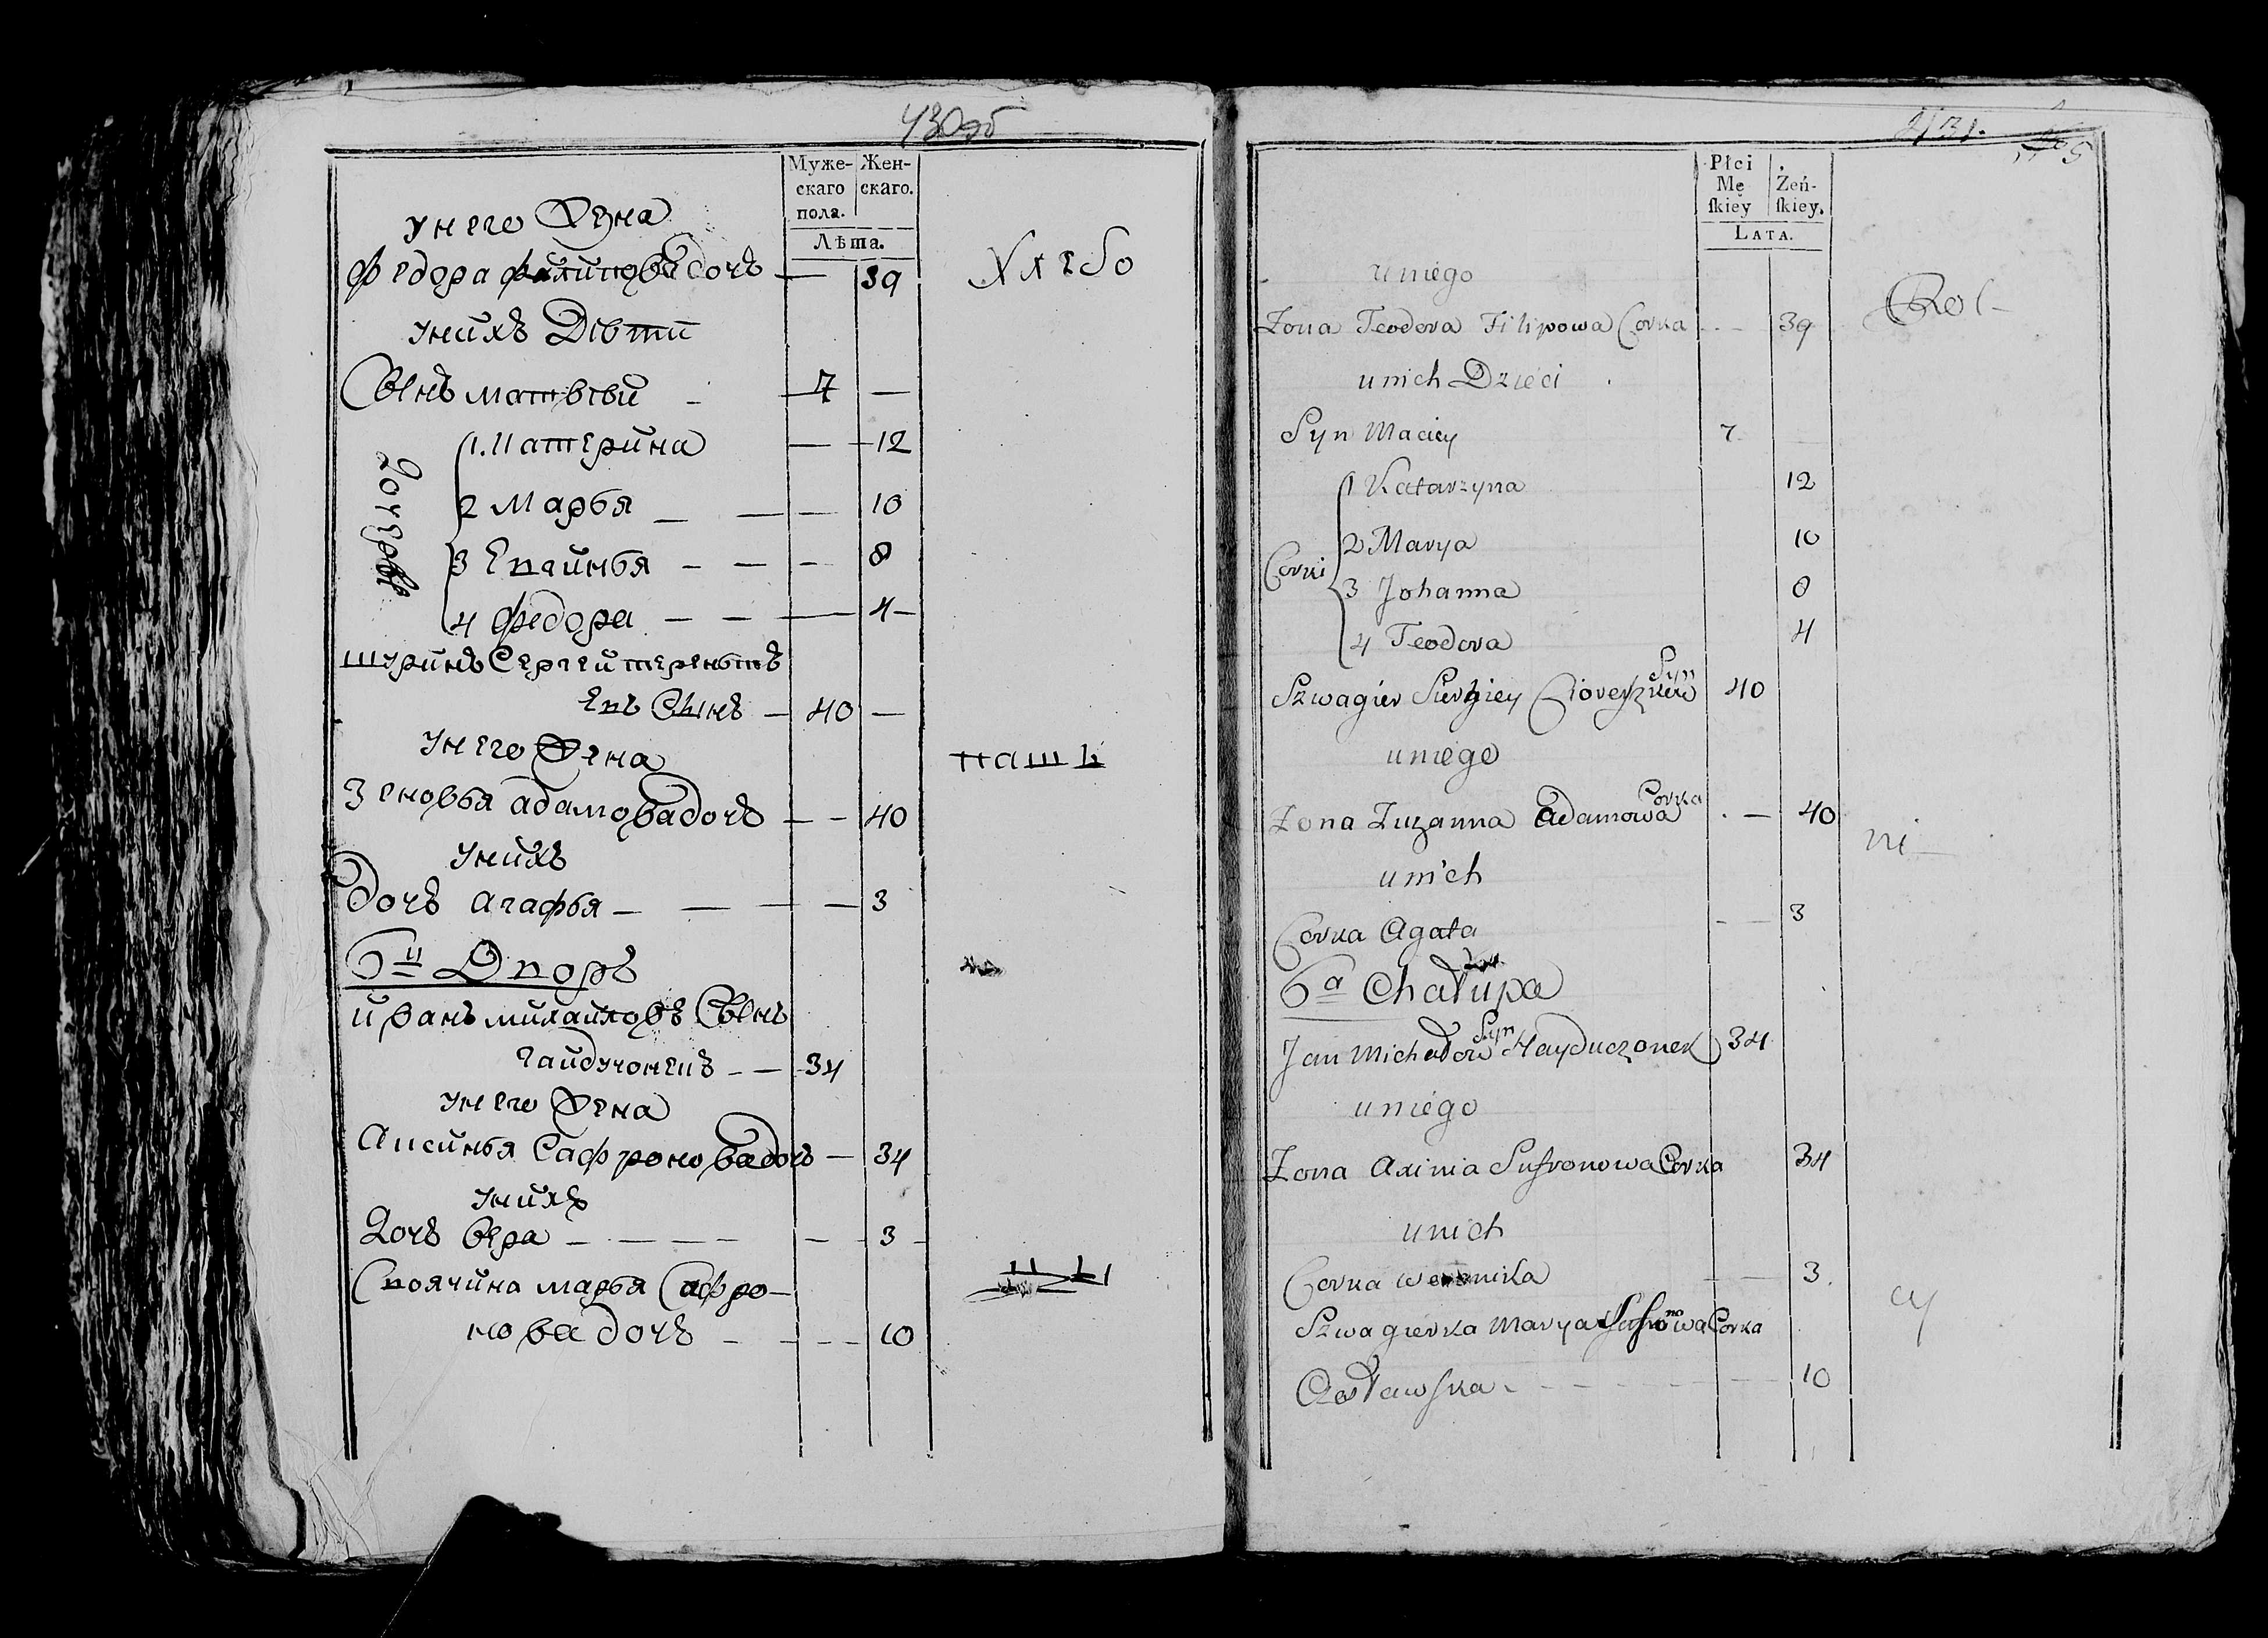 430об
Муже-
скаго
пола.
Жен-
скаго.
Лѣта.
у него Жена
федора филипова дочь — 39
Хлебо
у нихъ Дѣти
Сынъ матвѣй - 7 —
Дочерьи
1. Катерина — 12
2 Марья — — — 10
3 Евгинья — — — 8
4 федора — — — 4
шуринъ Сергей терентьѣ
евъ Сынъ — 40 —
у него Жена
пашъ
Зеновья адамова дочь — — 40
у нихъ
дочь агафья — — — — 3
6й Дворъ
иванъ михайловъ Сынъ
гайдучонекъ — — 34
у него Жена
Аксинья Сафронова дочь — 34
у нихъ
Дочь вера — — — — 3
Своячина марья Сафро-
цы
нова дочь — — — 10
431.
Płci
Mę
ſkiey
Żeń-
ſkiey.
LATA.
u niego
Rol-
Żona Teodora Filipowa Corka — 39
u nich Dzieci
Syn Maciey 7
Corki
1 Katarzyna 12
2 Marya 10
3 Johanna 8
4 Teodora 4
Szwagier Serhiey Syn 40
u niego
Żona Zuzanna Adamowa Corka — 40
ni-
u nich
Corka Agata — 3
6a Chałupa
Jan Michałow Syn Hayduczonek 34
u niego
Żona Axinia Sufronowa Corka 34
u nich
Corka Weronika — 3.
cy
Szwagierka Marya Sufronowa Corka
— — — 10